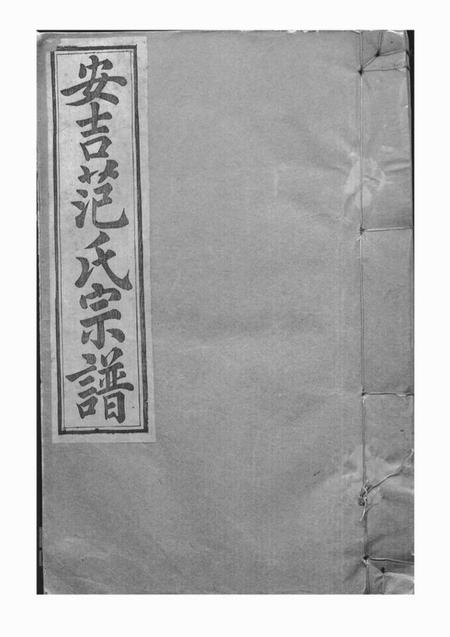 安吉范氏宗譜